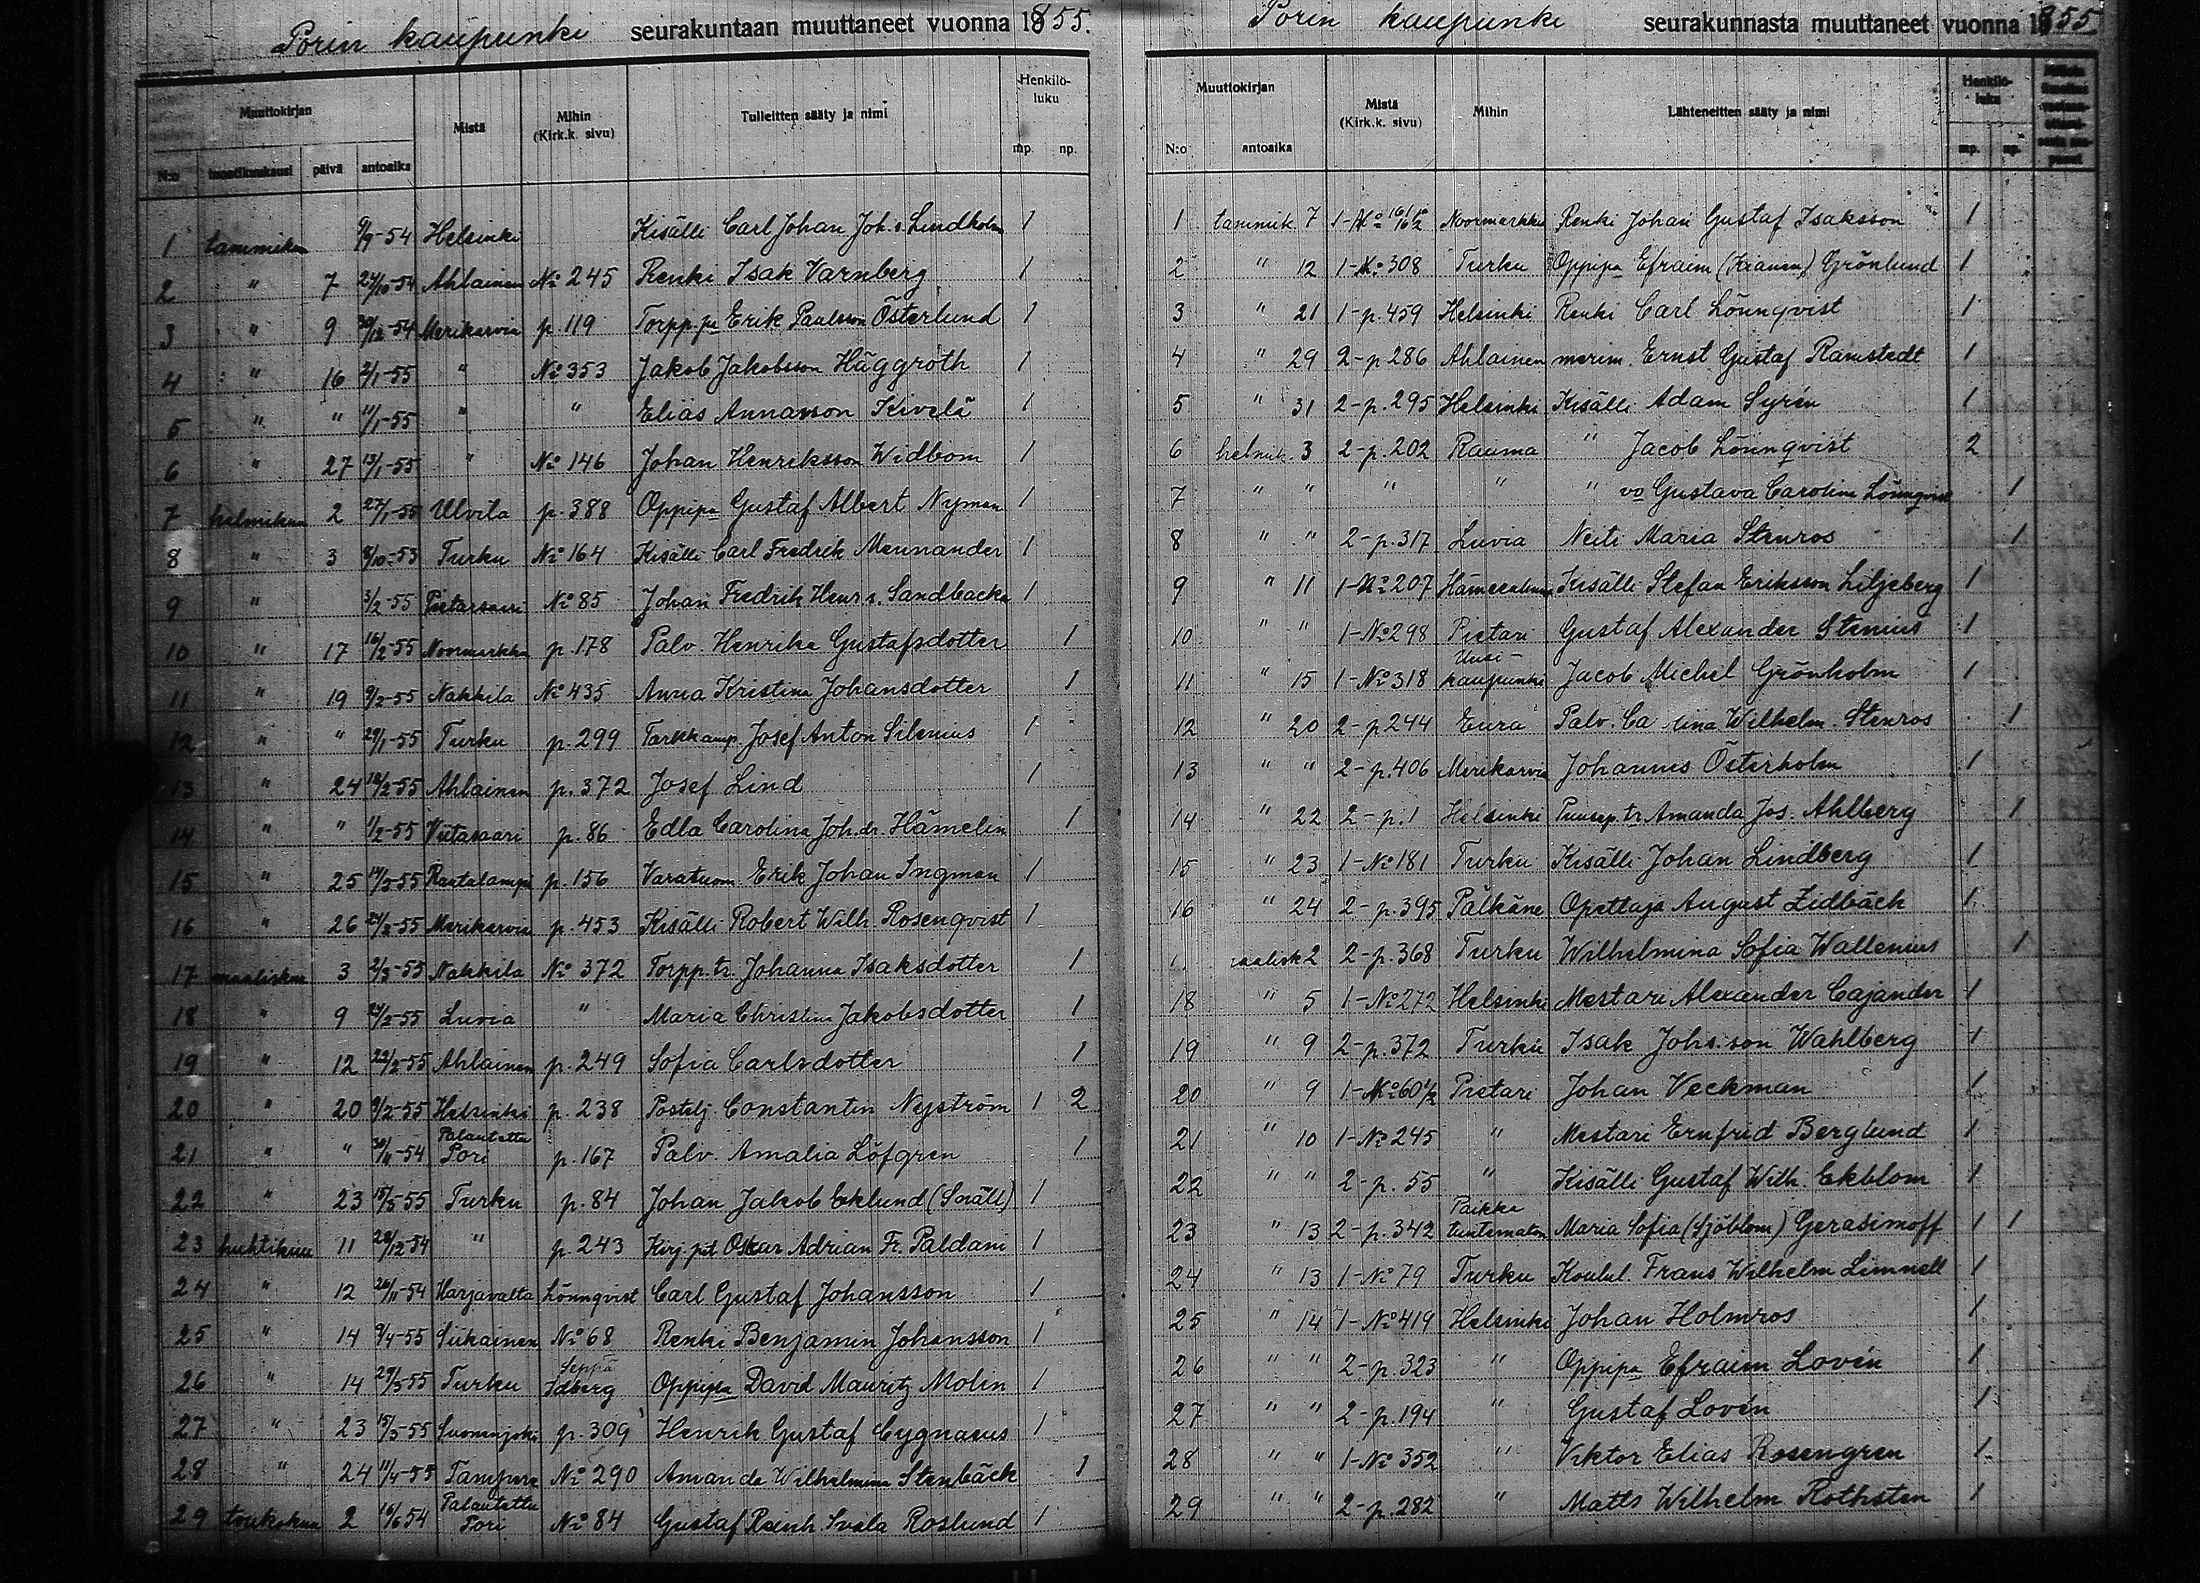 Porin kaupunki seurakuntaan muuttaneet vuonna 1855.
Muuttokirjan Mistä Mihin (Kirk.k. sivu) Tulleitten sääty ja nimi Henkilö-luku
N:o tuontikuukausi päivä antoaika mp. np.
1 tammikuu 9/9-54 Helsinki Kisälli Carl Johan Joh.s. Lindholm 1
2 " 7 27/10-54 Ahlainen No 245 Renki Isak Varnberg 1
3 " 9 30/12-54 Merikarvia p. 119 Torpp.pa Erik Paulsson Österlund 1
4 " 16 2/1-55 " No 353 Jakob Jakobsson Häggroth 1
5 " " 11/1-55 " " Elias Annasson Kivelä 1
6 " 27 13/1-55 " No 146 Johan Henriksson Widbom 1
7 helmikuu 2 27/1-55 Ulvila p. 388 Oppipa Gustaf Albert Nyman 1
8 " 3 8/10-53 Turku No 164 Kisälli Carl Fredrik Mennander 1
9 " 3/2-55 Pietarsaari No 85 Johan Fredrik Henr.s. Sandbacka 1
10 " 17 16/2-55 Noormarkku p. 178 Palv. Henrika Gustafsdotter 1
11 " 19 9/2-55 Nakkila No 435 Anna Kristina Johansdotter 1
12 " " 29/1-55 Turku p. 299 Tarkkamp. Josef Anton Silenius 1
13 " 24 18/2-55 Ahlainen p. 372 Josef Lind 1
14 " " 1/2-55 Viitasaari p. 86 Edla Carolina Joh.dr. Hämelin 1
15 " 25 14/2-55 Rautalampi p. 156 Varatuom. Erik Johan Ingman 1
16 " 26 24/2-55 Merikarvia p. 453 Kisälli Robert Wilh. Rosenqvist 1
17 maaliskuu 3 2/3-55 Nakkila No 372 Torpp.tr. Johanna Isaksdotter 1
18 " 9 24/2-55 Luvia " Maria Christina Jakobsdotter 1
19 " 12 22/2-55 Ahlainen p. 249 Sofia Carlsdotter 1
20 " 20 9/2-55 Helsinki p. 238 Postilj. Constantin Nyström 1 2
21 " " 30/11-54 Palautettu Pori p. 167 Palv. Amalia Löfgren 1
22 " 23 15/3-55 Turku p. 84 Johan Jakob Eklund (Snäll) 1
23 huhtikuu 11 28/12-54 " p. 243 Kirj.pit. Oskar Adrian Fr. Paldani 1
24 " 12 26/11-54 Harjavalta Lönnqvist Carl Gustaf Johansson 1
25 " 14 9/4-55 Siikainen No 68 Renki Benjamin Johansson 1
26 " 14 29/3-55 Turku Seppä Idberg Oppipa David Mauritz Molin 1
27 " 23 15/3-55 Suomusjoki p. 309 Henrik Gustaf Cygnaeus 1
28 " 24 11/4-55 Tampere No 290 Amanda Wilhelmina Stenbäck 1
29 toukokuu 2 16/6 54 Palautettu Pori No 84 Gustaf Reinh Svala Roslund 1
Porin kaupunki seurakunnasta muuttaneet vuonna 1855
Muuttokirjan Mistä (Kirk.k. sivu) Mihin Lähteneitten sääty ja nimi Henkilö-luku
N:o antoaika mp. np.
1 tammik. 7 1-No 161/162 Noormarkku Renki Johan Gustaf Isaksson 1
2 " 12 1-No 308 Turku Oppipa Efraim () Grönlund 1
3 " 21 1-p. 459 Helsinki Renki Carl Lönnqvist 1
4 " 29 2-p 286 Ahlainen merim. Ernst Gustaf Ramstedt 1
5 " 31 2-p. 295 Helsinki Kisälli Adam Syrén 1
6 helmik. 3 2-p. 202 Rauma " Jacob Lönnqvist 2
7 " " " " " vo Gustava Carolina Lönnqvist 1
8 " " 2-p. 317 Luvia Neiti Maria Stenros 1
9 " 11 1-No 207 Hämeenlinna Kisälli Stefan Eriksson Liljeberg 1
10 " " 1-No 298 Pietari Gustaf Alexander Stenius 1
11 " 15 1-No 318 Uusi-kaupunki Jacob Michel Grönholm 1
12 " 20 2-p 244 Eura Palv. Ca lina Wilhelm. Stenros 1
13 " " 2-p. 406 Merikarvia Johannes Österholm 1
14 " 22 2-p. 1 Helsinki Puusep.tr. Amanda Jos. Ahlberg 1
15 " 23 1-No 181 Turku Kisälli Johan Lindberg 1
16 " 24 2-p. 395 Pälkäne Opettaja August Zidbäck 1
1 maalisk 2 2-p. 368 Turku Wilhelmina Sofia Wallenius 1
18 " 5 1-No 272 Helsinki Mestari Alexander Cajander 1
19 " 9 2-p. 372 Turku Isak Johs.son Wahlberg 1
20 " 9 1-No 60 1/2 Pietari Johan Veckman 1
21 " 10 1-No 245 " Mestari Ernfrid Berglund 1
22 " " 2-p. 55 " Kisälli Gustaf Wilh. Ekblom 1
23 " 13 2-p. 342 Paikka tuntematon Maria Sofia (Sjöblom) Gerasimoff 1 1
24 " 13 1-No 79 Turku Koulul. Frans Wilhelm Limnell 1
25 " 14 1-No 419 Helsinki Johan Holmros 1
26 " " 2-p. 323 " Oppipa Efraim Lovén 1
27 " " 2-p. 194 " Gustaf Lovén 1
28 " " 1-No 352 " Viktor Elias Rosengren 1
29 " " 2-p. 282 " Matts Wilhelm Rothsten 1